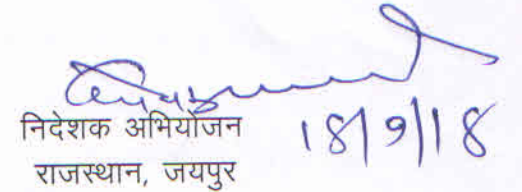 निदेशक अभियोजन
18/9/18
राजस्थान, जयपुर